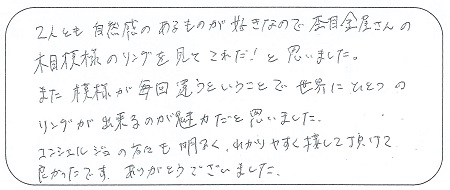 2人とも自然感のあるものが好きなので杢目金屋さんの
木目模様のリングを見てこれだ!と思いました。
また模様が毎回違うということで世界にひとつの
リングが出来るのが魅力だと思いました。
コンシェルジュの方々も明るく、わかりやすく接して頂けて
良かったです。ありがとうございました。